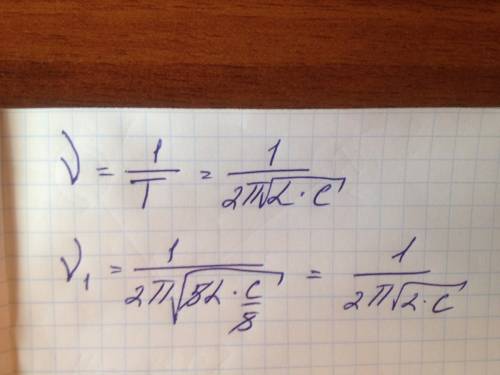 ν = 1/T = 1/(2π√(L · C))
ν₁ = 1/(2π√(8L · C/8)) = 1/(2π√(L · C))